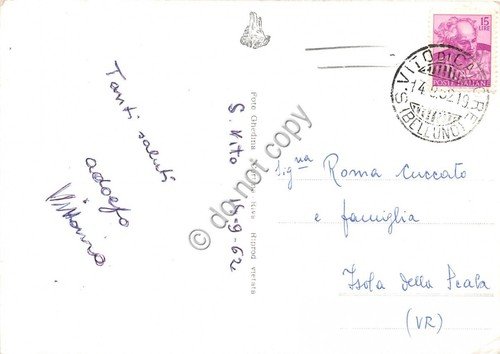 Tanti saluti
adolfo
Vittorio
S. Vito 14-9-62
Foto Ghedina
Riva Riprod. vietata
© do not copy
15
LIRE
POSTE ITALIANE
S. VITO DI CADORE
14.9.62.19
(BELLUNO)
Sig.na Roma Cuccato
e famiglia
Isola della Scala
(VR)